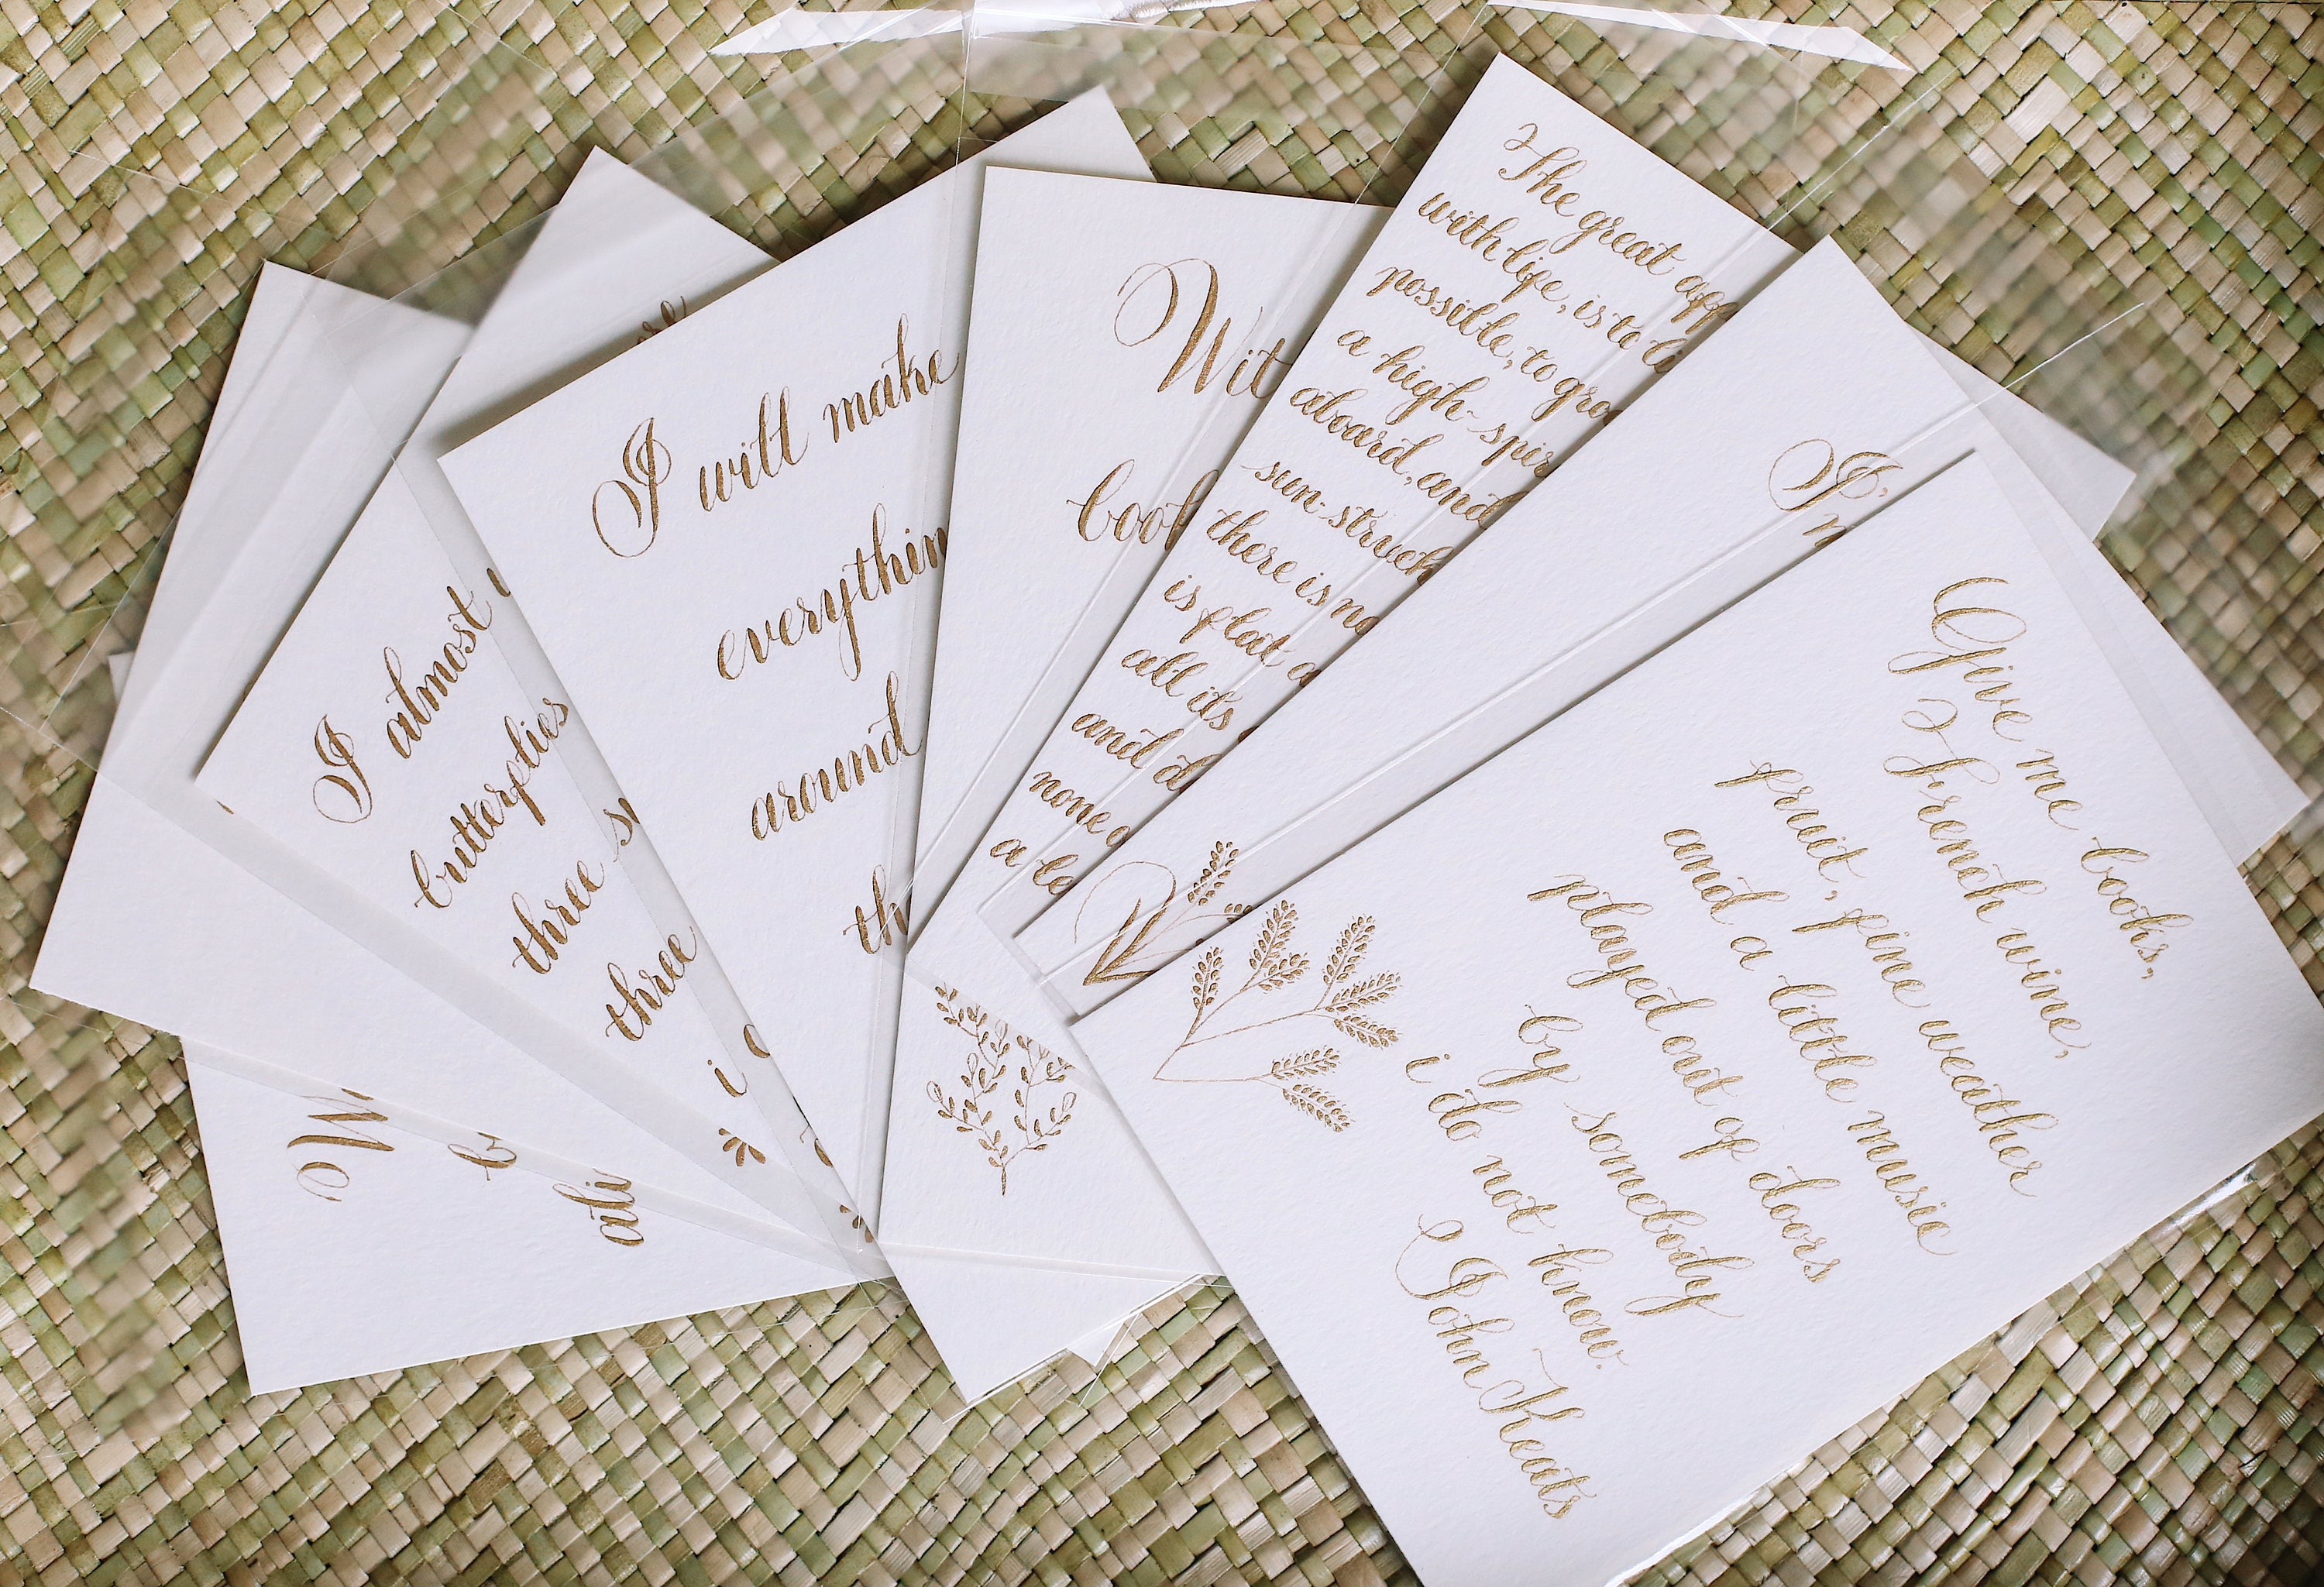 W
b
ali
I almost
butterflies
three s
three
i
I will make
everythin
around
th
Wit
boo
The great aff
with life, is to li
possible, to gro
a high-spir
aboard, and
sun-struck
there is no
is flat a
all its
and d
none o
a le
I'
m
Give me books,
French wine,
fruit, fine weather
and a little music
played out of doors
by somebody
i do not know.
~ John Keats